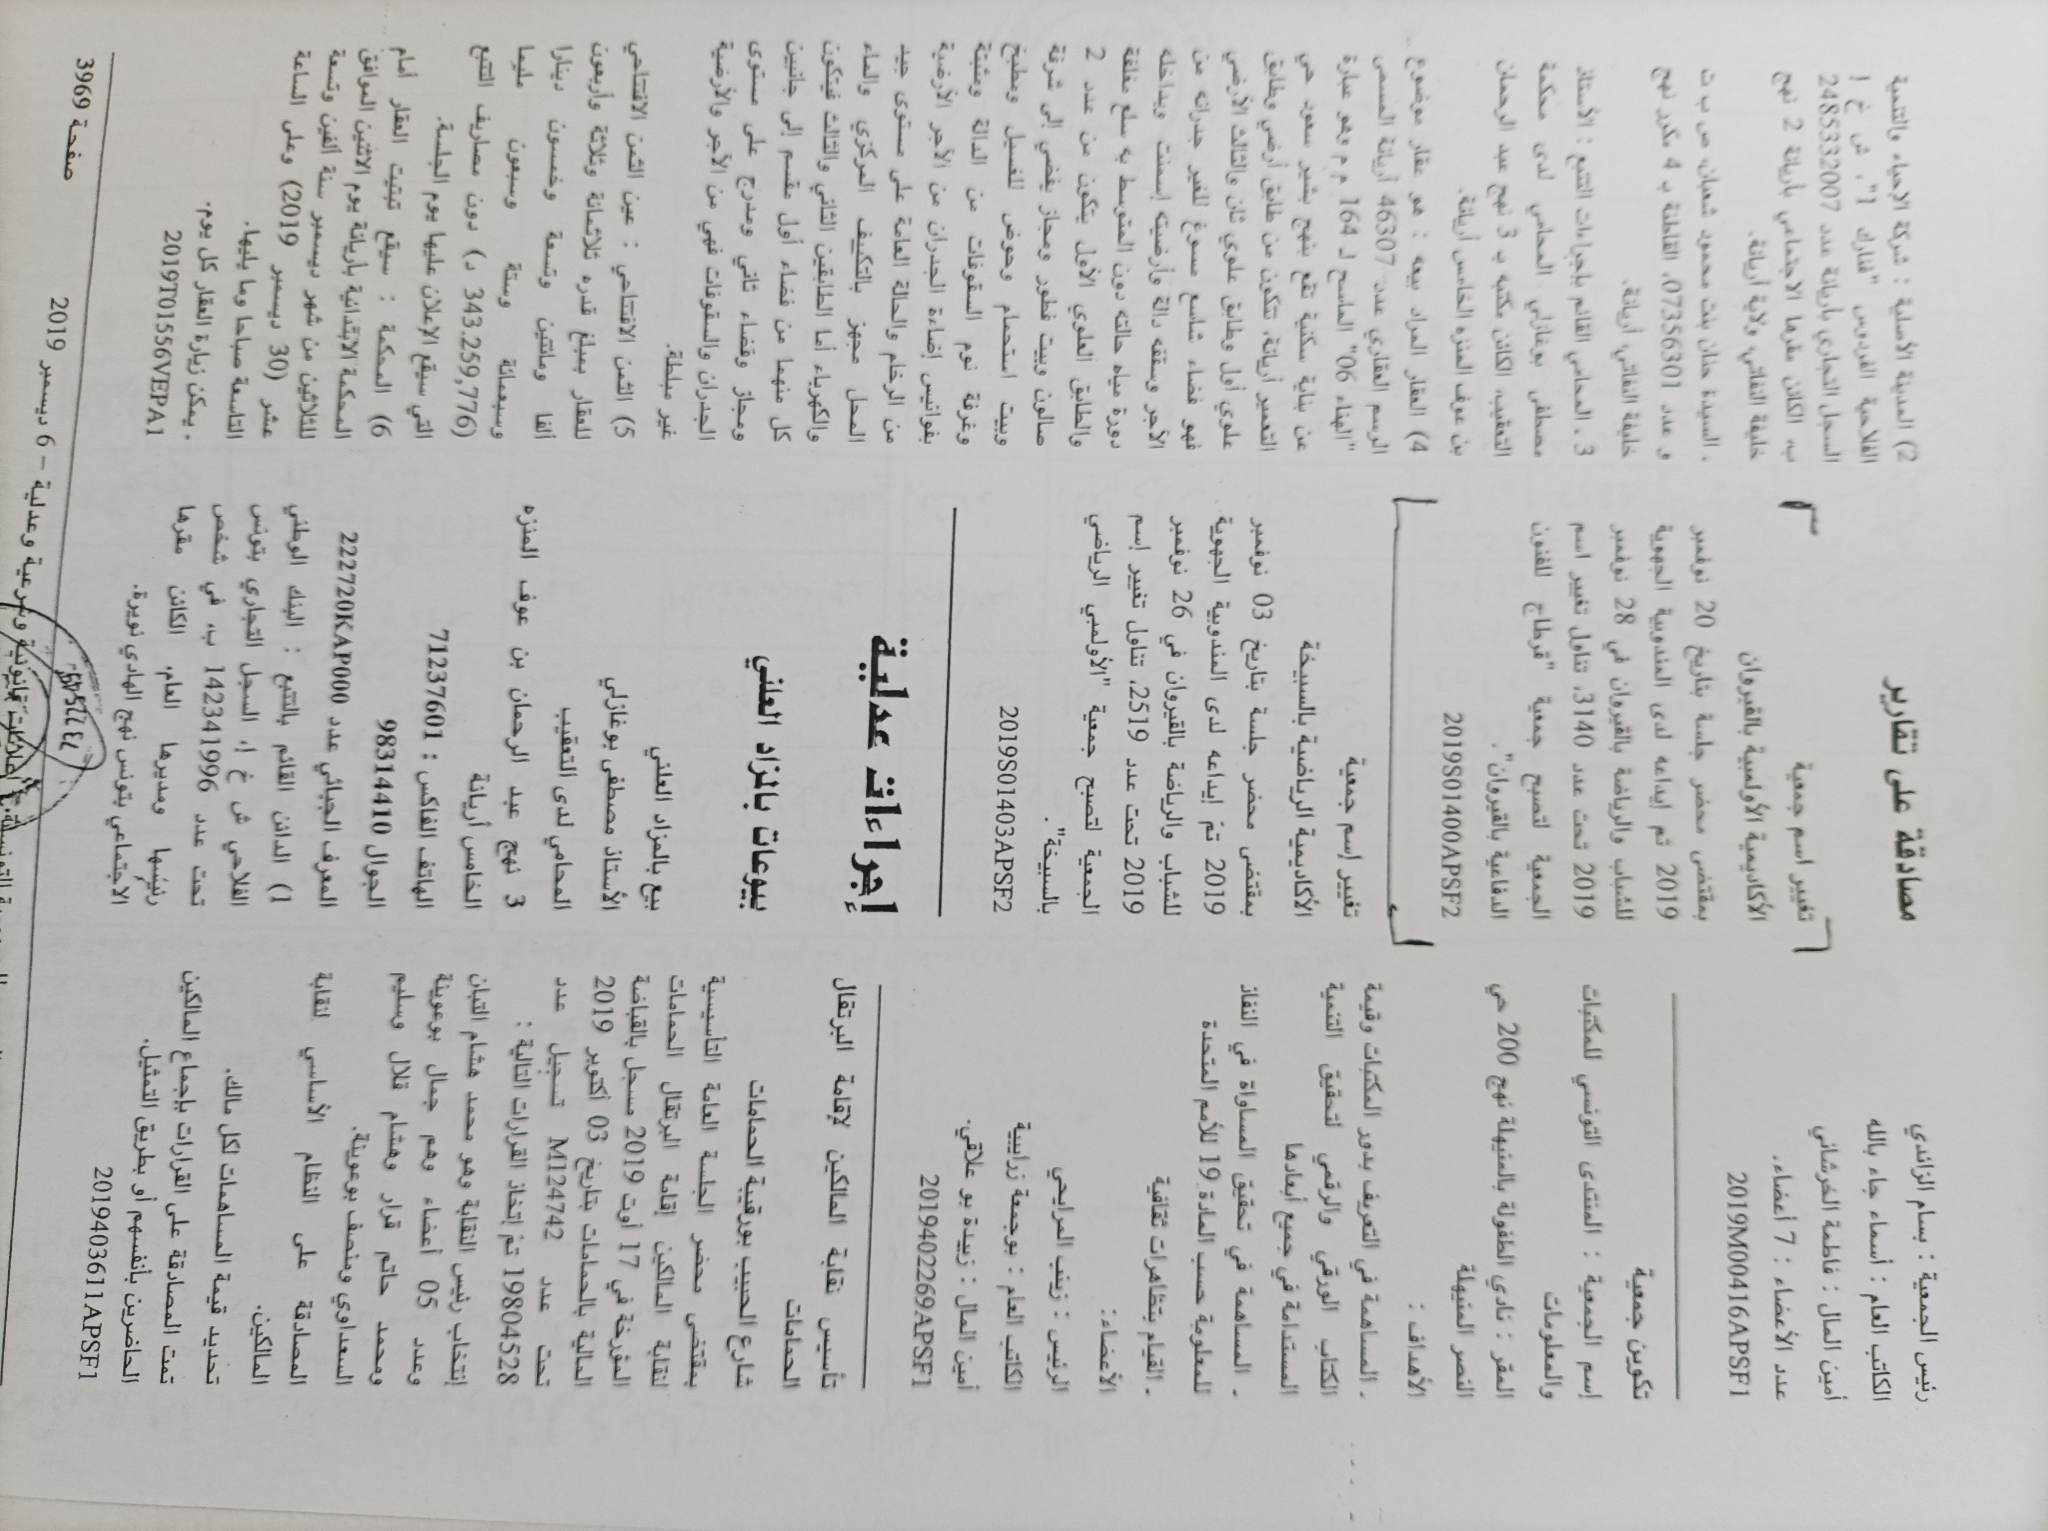 رئيس الجمعية : بسام الزائدي
الكاتب العام : أسماء جاء بالله
أمين المال : فاطمة الخرشاني
عدد الأعضاء : 7 أعضاء.
2019M00416APSF1
تكوين جمعية
إسم الجمعية : المنتدى التونسي للمكتبات
والمعلومات
المقر : نادي الطفولة بالمنيهلة نهج 200 حي
النصر المنيهلة
الأهداف :
ـ المساهمة في التعريف بدور المكتبات وقيمة
الكتاب الورقي والرقمي لتحقيق التنمية
المستدامة في جميع أبعادها
ـ المساهمة في تحقيق المساواة في النفاذ
للمعلومة حسب المادة 19 للأمم المتحدة
ـ القيام بتظاهرات ثقافية
الأعضاء:
الرئيس : زينب المرايحي
الكاتب العام : بوجمعة زرايبية
أمين المال : زبيدة بو علاقي.
2019402269APSF1
تأسيس نقابة المالكين لإقامة البرتقال
الحمامات
شارع الحبيب بورقيبة الحمامات
بمقتضى محضر الجلسة العامة التأسيسية
لنقابة المالكين إقامة البرتقال الحمامات
المؤرخة في 17 أوت 2019 مسجل بالقباضة
المالية بالحمامات بتاريخ 03 أكتوبر 2019
تحت عدد M124742 تسجيل عدد
19804528 تمّ إتخاذ القرارات التالية :
إنتخاب رئيس النقابة وهو محمد هشام التبان
وعدد 05 أعضاء وهم جمال بوعوينة
ومحمد حاتم قرار وهشام قلال وسليم
السعداوي ومنصف بوعوينة.
المصادقة على النظام الأساسي لنقابة
المالكين.
تحديد قيمة المساهمات لكل مالك.
تمت المصادقة على القرارات بإجماع المالكين
الحاضرين بأنفسهم أو بطريق التمثيل.
2019403611APSF1
مصادقة على تقارير
تغيير اسم جمعية
الأكاديمية الأولمبية بالقيروان
بمقتضى محضر جلسة بتاريخ 20 نوفمبر
2019 تم إيداعه لدى المندوبية الجهوية
للشباب والرياضة بالقيروان في 28 نوفمبر
2019 تحت عدد 3140، تناول تغيير اسم
الجمعية لتصبح جمعية "قرطاج للفنون
الدفاعية بالقيروان".
2019S01400APSF2
تغيير إسم جمعية
الأكاديمية الرياضية بالسبيخة
بمقتضى محضر جلسة بتاريخ 03 نوفمبر
2019 تمّ إيداعه لدى المندوبية الجهوية
للشباب والرياضة بالقيروان في 26 نوفمبر
2019 تحت عدد 2519، تناول تغيير إسم
الجمعية لتصبح جمعية "الأولمبي الرياضي
بالسبيخة".
2019S01403APSF2
إجراءات عدلية
بيوعات بالمزاد العلني
بيع بالمزاد العلني
الأستاذ مصطفى بوغازلي
المحامي لدى التعقيب
3 نهج عبد الرحمان بن عوف المنزه
الخامس أريانة
الهاتف الفاكس : 71237601
الجوال 98314410
المعرف الجبائي عدد 222720KAP000
1) الدائن القائم بالتتبع : البنك الوطني
الفلاحي ش خ إ، السجل التجاري بتونس
تحت عدد 142341996 ب، في شخص
رئيسها ومديرها العام، الكائن مقرها
الاجتماعي بتونس نهج الهادي نويرة.
2) المدينة الأصلية : شركة الإحياء والتنمية
الفلاحية الفردوس "فنارك 1"، ش خ إ
السجل التجاري بأريانة عدد 248532007
ب، الكائن مقرها الاجتماعي بأريانة 2 نهج
خليفة النفاتي، ولاية أريانة.
ـ السيدة حنان بنت محمود شعبان، ص ب ت
و عدد 07356301، القاطنة ب 4 مكرر نهج
خليفة النفاتي، أريانة.
3 ـ المحامي القائم بإجراءات التتبع : الأستاذ
مصطفى بوغازلي المحامي لدى محكمة
التعقيب، الكائن مكتبه ب 3 نهج عبد الرحمان
بن عوف المنزه الخامس أريانة.
4) العقار المراد بيعه : هو عقار موضوع
الرسم العقاري عدد 46307 أريانة المسمى
"الهناء 06" الماسح لـ 164 م م وهو عبارة
عن بناية سكنية تقع بنهج بشير سعود حي
التعمير أريانة، تتكون من طابق أرضي وطابق
علوي أول وطابق علوي ثان والثالث الأرضي
فهو فضاء شاسع مسوغ للغير جدرانه من
الأجر وسقفه دالة وأرضيته إسمنت وبداخله
دورة مياه حالته دون المتوسط به سلع مغلقة
والطابق العلوي الأول يتكون من عدد 2
صالون وبيت فطور ومجاز يفضي إلى شرفة
وبيت استحمام وحوض للغسيل ومطبخ
وغرفة نوم السقوفات من الدالة ومثبتة
بفوانيس إضاءة الجدران من الأجر الأرضية
من الرخام والحالة العامة على مستوى جيد
المحل مجهز بالتكييف المركزي والماء
والكهرباء أما الطابقين الثاني والثالث فيتكون
كل منهما من فضاء أول مقسم إلى جانبين
ومجاز وفضاء ثاني ومدرج على مستوى
الجدران والسقوفات فهي من الأجر والأرضية
غير مبلطة.
5) الثمن الافتتاحي : عين الثمن الافتتاحي
للعقار بمبلغ قدره ثلاثمائة وثلاثة وأربعون
ألفا ومائتين وتسعة وخمسون دينارا
وسبعمائة وستة وسبعون مليما
(343.259,776 د) دون مصاريف التتبع
التي سيقع الإعلان عليها يوم الجلسة.
6) المحكمة : سيقع تبتيت العقار أمام
المحكمة الابتدائية بأريانة يوم الاثنين الموافق
للثلاثين من شهر ديسمبر سنة ألفين وتسعة
عشر (30 ديسمبر 2019) وعلى الساعة
التاسعة صباحا وما يليها.
ـ يمكن زيارة العقار كل يوم.
2019T01556VEPA1
إعلانات قانونية وشرعية وعدلية – 6 ديسمبر 2019
صفحة 3969